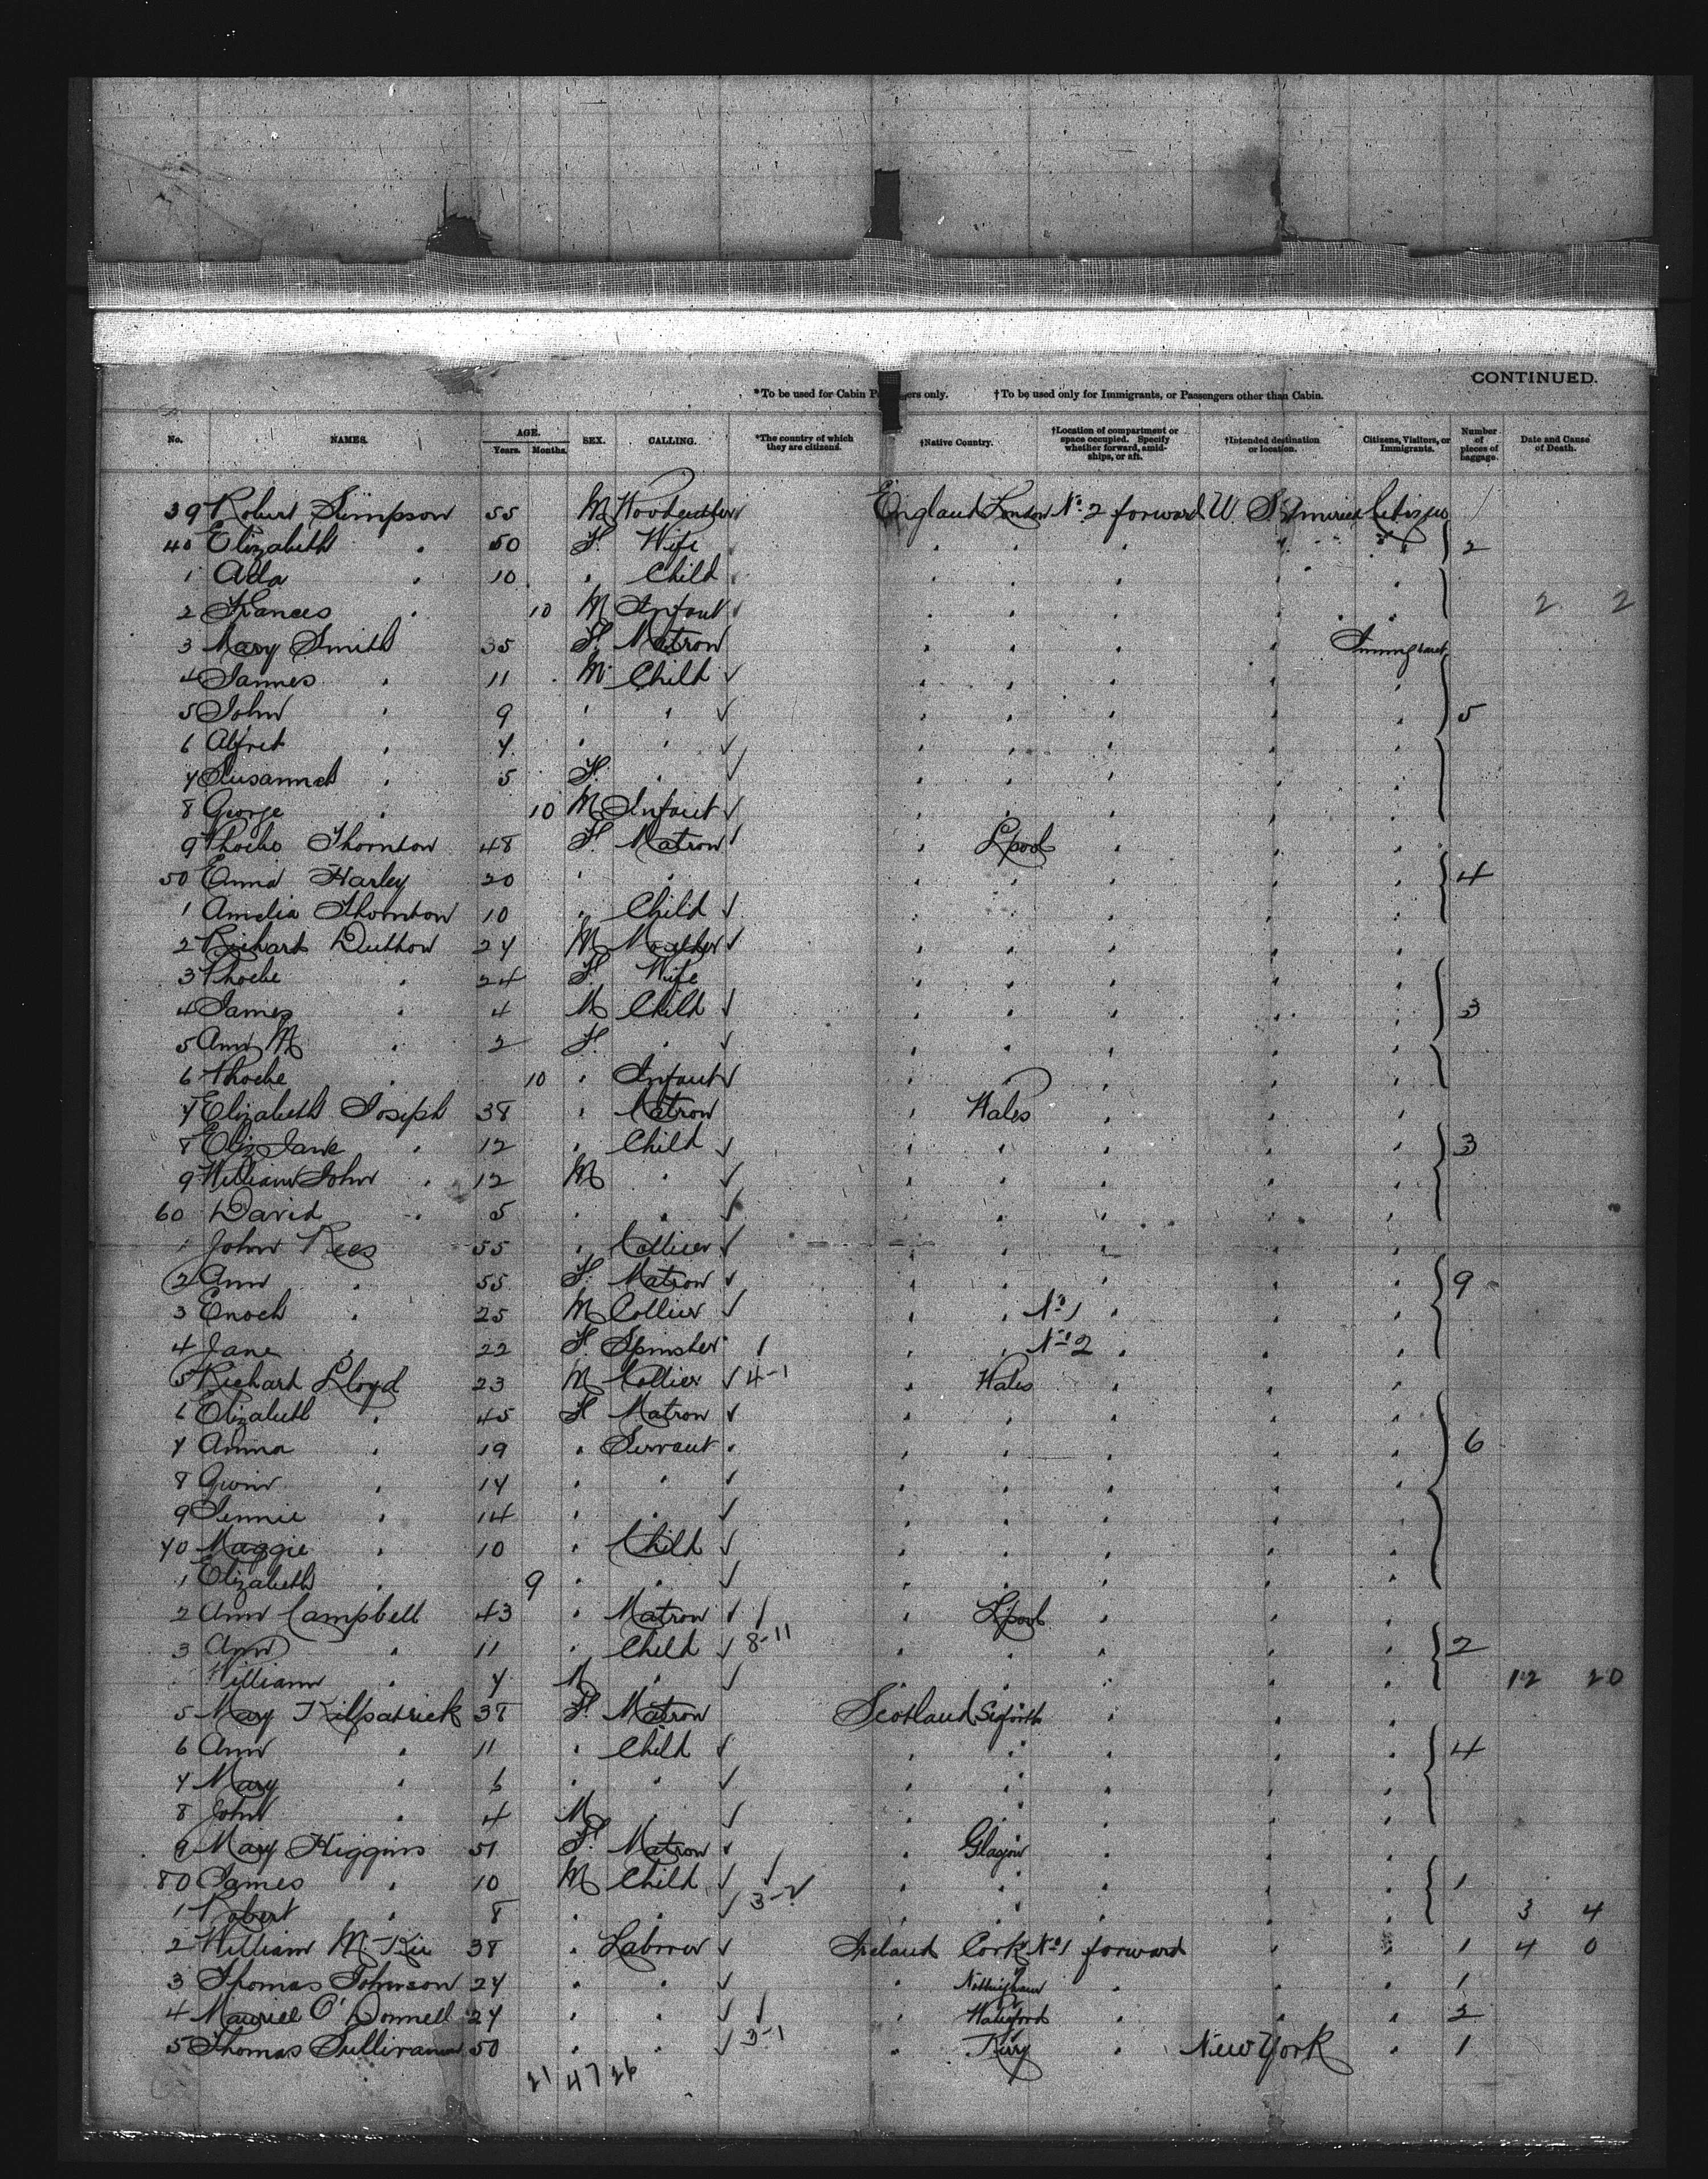 CONTINUED.
*To be used for Cabin P ers only. †To be used only for Immigrants, or Passengers other than Cabin.
No. NAMES. AGE. Years. Months. SEX. CALLING. *The country of which they are citizens. †Native Country. †Location of compartment or space occupied. Specify whether forward, amidships, or aft. †Intended destination or location. Citizens, Visitors, or Immigrants. Number of pieces of baggage. Date and Cause of Death.
39 Robert Simpson 55 M England London No. 2 forward U. S. America Citizen
40 Elizabeth " 50 F. Wife " " " " " 2
1 Ada " 10 " Child " " " " "
2 Frances " 10 M Infant " " " " " 2 2
3 Mary Smith 35 F. Matron " " " " Immigrant
4 James " 11 M Child " " " " "
5 John " 9 " " " " " " " 5
6 Alfret " 7 " " " " " " "
7 Susannah " 5 F. " " " " " "
8 George " 10 M Infant " " " " "
9 Phoebe Thornton 48 F. Matron " Lpool " " "
50 Harley 20 " " " " " " " 4
1 Amelia Thornton 10 " Child " " " " "
2 Richart Dutton 27 M Moulder " " " " "
3 Phoebe " 24 F. Wife " " " " "
4 James " 4 M Child " " " " " 3
5 Ann M " 2 F. " " " " " "
6 Phoebe " 10 " Infant " " " " "
7 Elizabeth Joseph 38 " Matron " Wales " " "
8 Eliz Jane " 12 " Child " " " " " 3
9 William John " 12 M " " " " " "
60 David " 5 " " " " " " "
1 John Rees 55 " Collier " " " " "
2 Ann " 55 F. Matron " " " " " 9
3 Enoch " 25 M Collier " " No. 1 " " "
4 Jane " 22 F. Spinster " " No. 2 " " "
5 Richart Lloyd 23 M Collier 4-1 " Wales " " "
6 Elizabeth " 45 F Matron " " " " "
7 Anna " 19 " Servant " " " " " 6
8 Gwin " 17 " " " " " " "
9 Jennie " 14 " " " " " " "
70 Maggie " 10 " Child " " " " "
1 Elizabeth " 9 " " " " " " "
2 Ann Campbell 43 " Matron " Lpool " " "
3 Ann " 11 " Child 8-11 " " " " " 2
William 7 M " " " " " " 12 20
5 Mary Kilpatrick 38 F. Matron Scotland " " "
6 Ann " 11 " Child " " " " " 4
7 Mary " 6 " " " " " " "
8 John " 4 M " " " " " "
9 Mary Higgins 51 F. Matron " Glasgow " " "
80 James " 10 M Child " " " " " 1
1 Robert " 8 " " 3-2 " " " " " 3 4
2 William 38 " Laborer Ireland Cork No. 1 forward " " 1 4 0
3 Thomas Johnson 27 " " " Nottingham " " " 1
4 O'Donnell 27 " " " Waterford " " " 2
5 Thomas Sullivan 50 " " 3-1 " Kerry " New York " 1
21 47 26